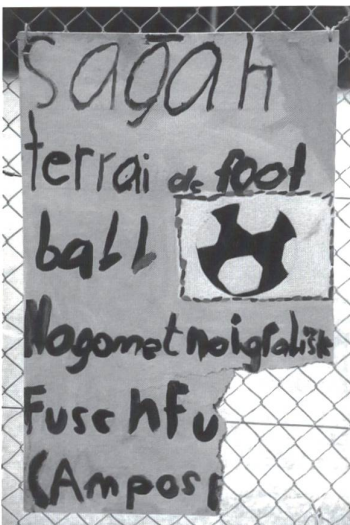 sagah
terrai de foot
ball
Nogomet noigrališk
Fusc hfu
CAmpos